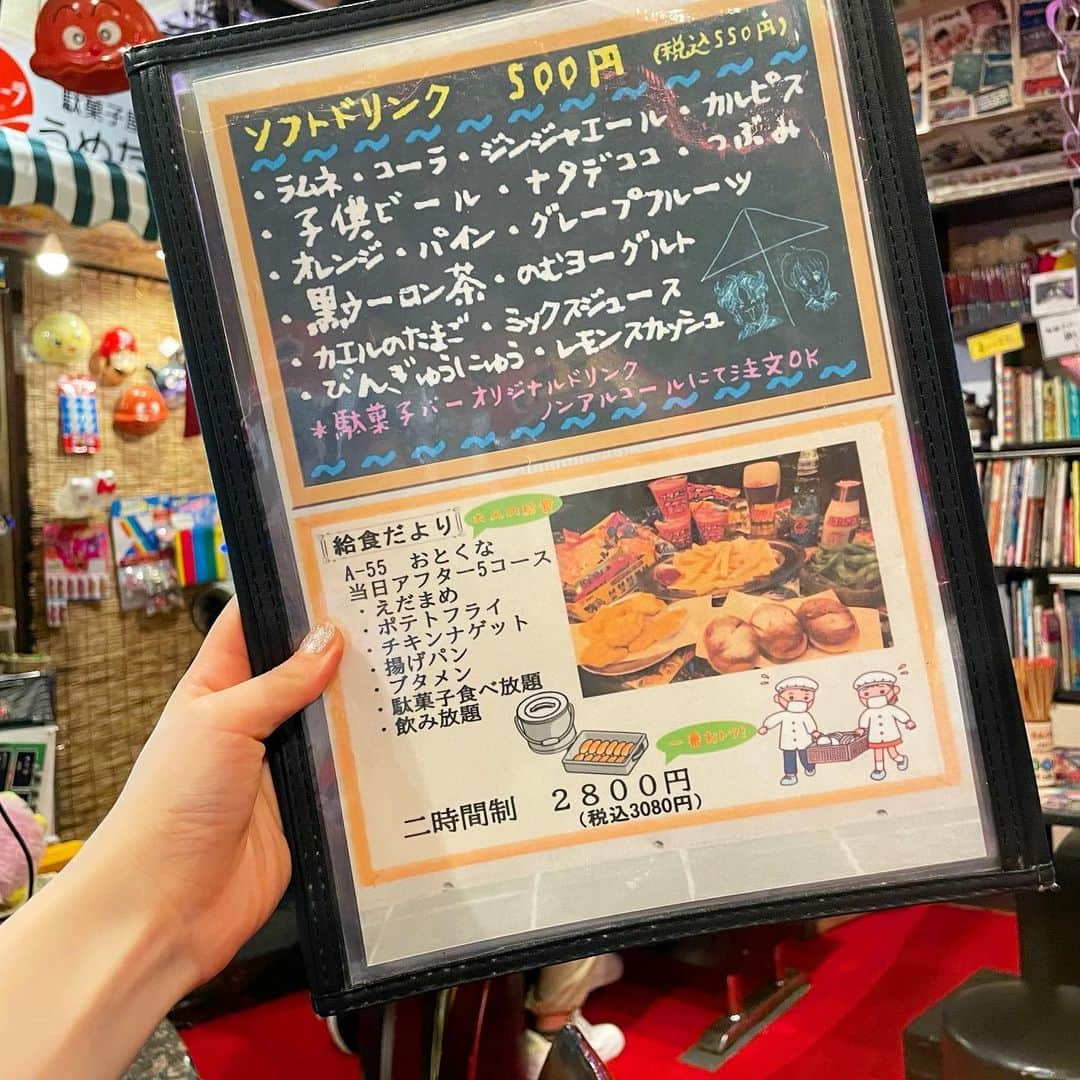 駄菓子屋
うめだ
ソフトドリンク 500円 (税込550円)
・ラムネ・コーラ・ジンジャエール・カルピス
・子供ビール・ナタデココ・つぶみ
・オレンジ・パイン・グレープフルーツ
・黒ウーロン茶・のむヨーグルト
・カエルのたまご・ミックスジュース
・びんぎゅうにゅう・レモンスカッシュ
*駄菓子バーオリジナルドリンク
ノンアルコールにて注文OK
給食だより
大人の給食
A-55 おとくな
当日アフター5コース
・えだまめ
・ポテトフライ
・チキンナゲット
・揚げパン
・ブタメン
・駄菓子食べ放題
・飲み放題
一番おトク!
二時間制 2800円
(税込3080円)